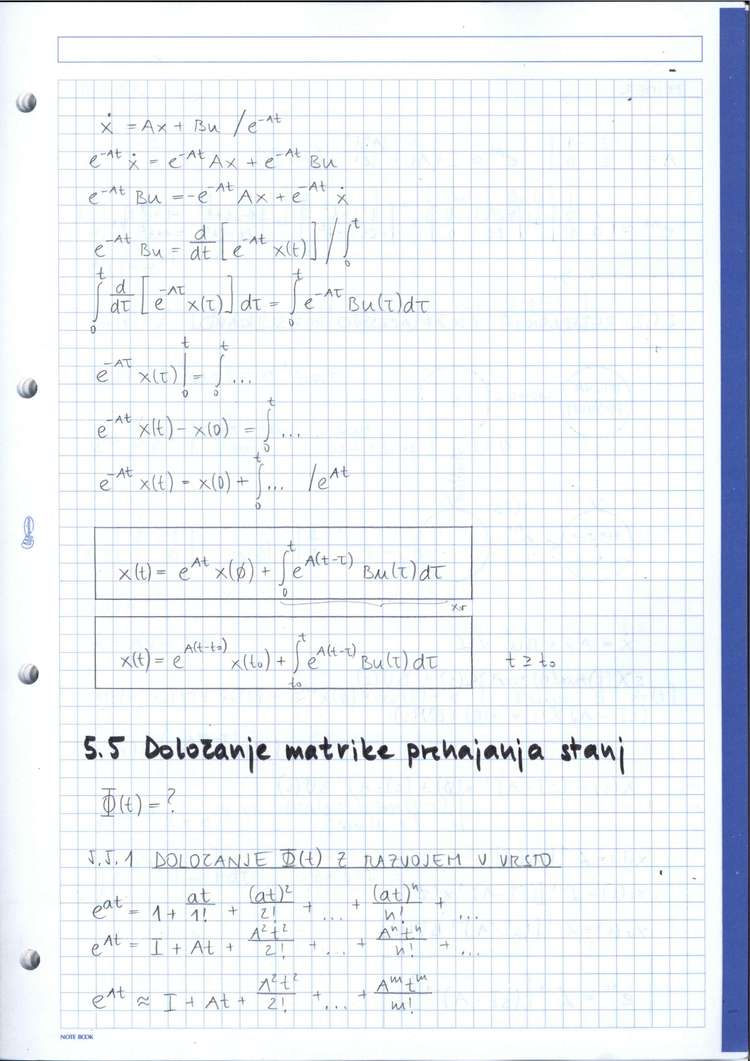 ẋ = Ax + Bu /e^-At
e^-At ẋ = e^-At Ax + e^-At Bu
e^-At Bu = -e^-At Ax + e^-At ẋ
e^-At Bu = d/dt [e^-At x(t)] / ∫_0^t
∫_0^t d/dτ [e^-Aτ x(τ)] dτ = ∫_0^t e^-Aτ Bu(τ)dτ
e^-Aτ x(τ)|_0^t = ∫_0^t ...
e^-At x(t) - x(0) = ∫_0^t ...
e^-At x(t) = x(0) + ∫_0^t ... /e^At
x(t) = e^At x(∅) + ∫_0^t e^A(t-τ) Bu(τ)dτ
x(t) = e^A(t-t₀) x(t₀) + ∫_t₀^t e^A(t-τ) Bu(τ)dτ t ≥ t₀
5.5 Določanje matrike prehajanja stanj
Φ(t) = ?
5.5.1 DOLOČANJE Φ(t) Z RAZVOJEM V VRSTO
e^at = 1 + at/1! + (at)²/2! + ... + (at)^n/n! + ...
e^At = I + At + A²t²/2! + ... + A^n t^n/n! + ...
e^At ≈ I + At + A²t²/2! + ... + A^m t^m/m!
NOTE BOOK